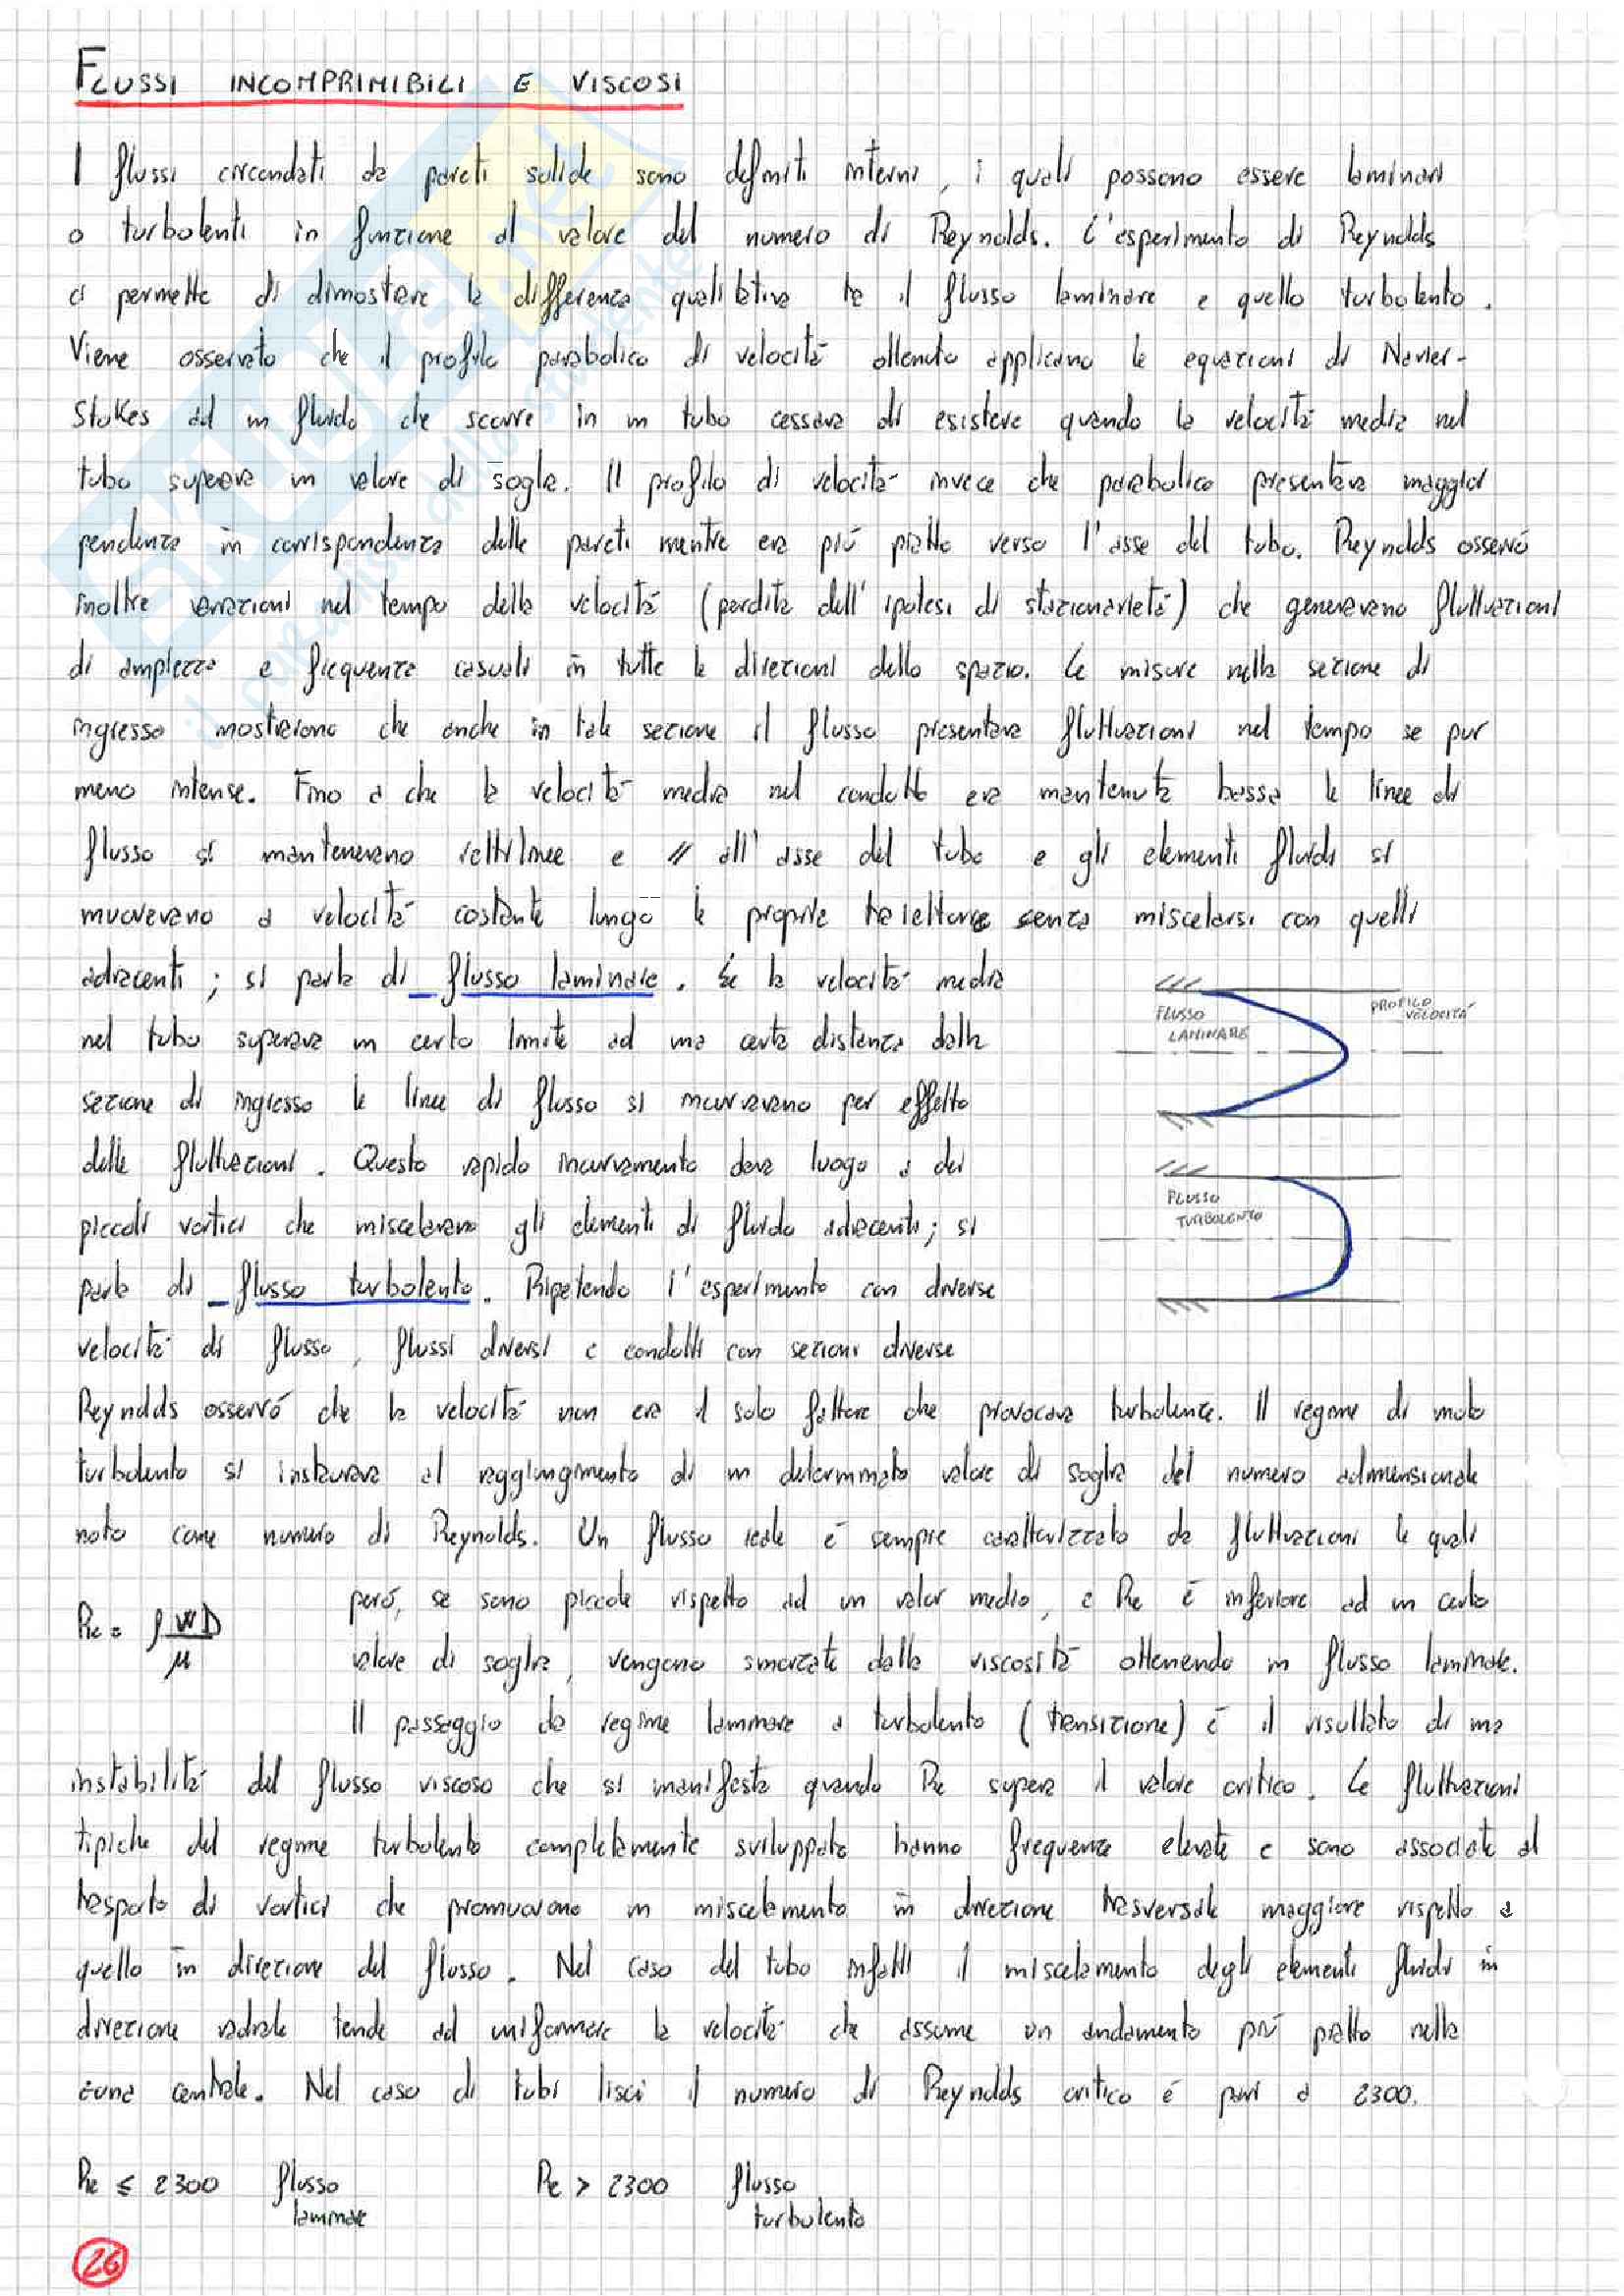 FLUSSI INCOMPRIMIBILI E VISCOSI
I flussi circondati da pareti solide sono definiti interni, i quali possono essere laminari
o turbolenti in funzione al valore del numero di Reynolds. L'esperimento di Reynolds
ci permette di dimostrare la differenza qualitativa tra il flusso laminare e quello turbolento.
Viene osservato che il profilo parabolico di velocità ottenuto applicano le equazioni di Navier-
Stokes ad un fluido che scorre in un tubo cessava di esistere quando la velocità media nel
tubo superava un valore di soglia. Il profilo di velocità invece che parabolico presentava maggior
pendenza in corrispondenza delle pareti mentre era più piatto verso l'asse del tubo. Reynolds osservò
inoltre variazioni nel tempo della velocità (perdita dell'ipotesi di stazionarietà) che generavano fluttuazioni
di ampiezza e frequenza casuali in tutte le direzioni dello spazio. Le misure nella sezione di
ingresso mostrarono che anche in tale sezione il flusso presentava fluttuazioni nel tempo se pur
meno intense. Fino a che la velocità media nel condotto era mantenuta bassa le linee di
flusso si mantenevano rettilinee e // all'asse del tubo e gli elementi fluidi si
muovevano a velocità costante lungo le proprie traiettorie senza miscelarsi con quelli
adiacenti; si parla di flusso laminare. Se la velocità media
nel tubo superava un certo limite ad una certa distanza dalla
sezione di ingresso le linee di flusso si incurvavano per effetto
delle fluttuazioni. Questo rapido incurvamento dava luogo a dei
piccoli vortici che miscelavano gli elementi di fluido adiacenti; si
parla di flusso turbolento. Ripetendo l'esperimento con diverse
velocità di flusso, flussi diversi e condotti con sezioni diverse
FLUSSO
LAMINARE
PROFILO
VELOCITÀ
FLUSSO
TURBOLENTO
Reynolds osservò che la velocità non era il solo fattore che provocava turbolenza. Il regime di moto
turbolento si instaurava al raggiungimento di un determinato valore di soglia del numero adimensionale
noto come numero di Reynolds. Un flusso reale è sempre caratterizzato da fluttuazioni le quali
però, se sono piccole rispetto ad un valor medio, e Re è inferiore ad un certo
Re = ρ WD / μ
valore di soglia, vengono smorzate dalla viscosità ottenendo un flusso laminare.
Il passaggio da regime laminare a turbolento (transizione) è il risultato di una
instabilità del flusso viscoso che si manifesta quando Re supera il valore critico. Le fluttuazioni
tipiche del regime turbolento completamente sviluppato hanno frequenze elevate e sono associate al
trasporto di vortici che promuovono un miscelamento in direzione trasversale maggiore rispetto a
quello in direzione del flusso. Nel caso del tubo infatti il miscelamento degli elementi fluidi in
direzione radiale tende ad uniformare la velocità che assume un andamento più piatto nella
zona centrale. Nel caso di tubi lisci il numero di Reynolds critico è pari a 2300.
Re ≤ 2300 flusso laminare
Re > 2300 flusso turbolento
26